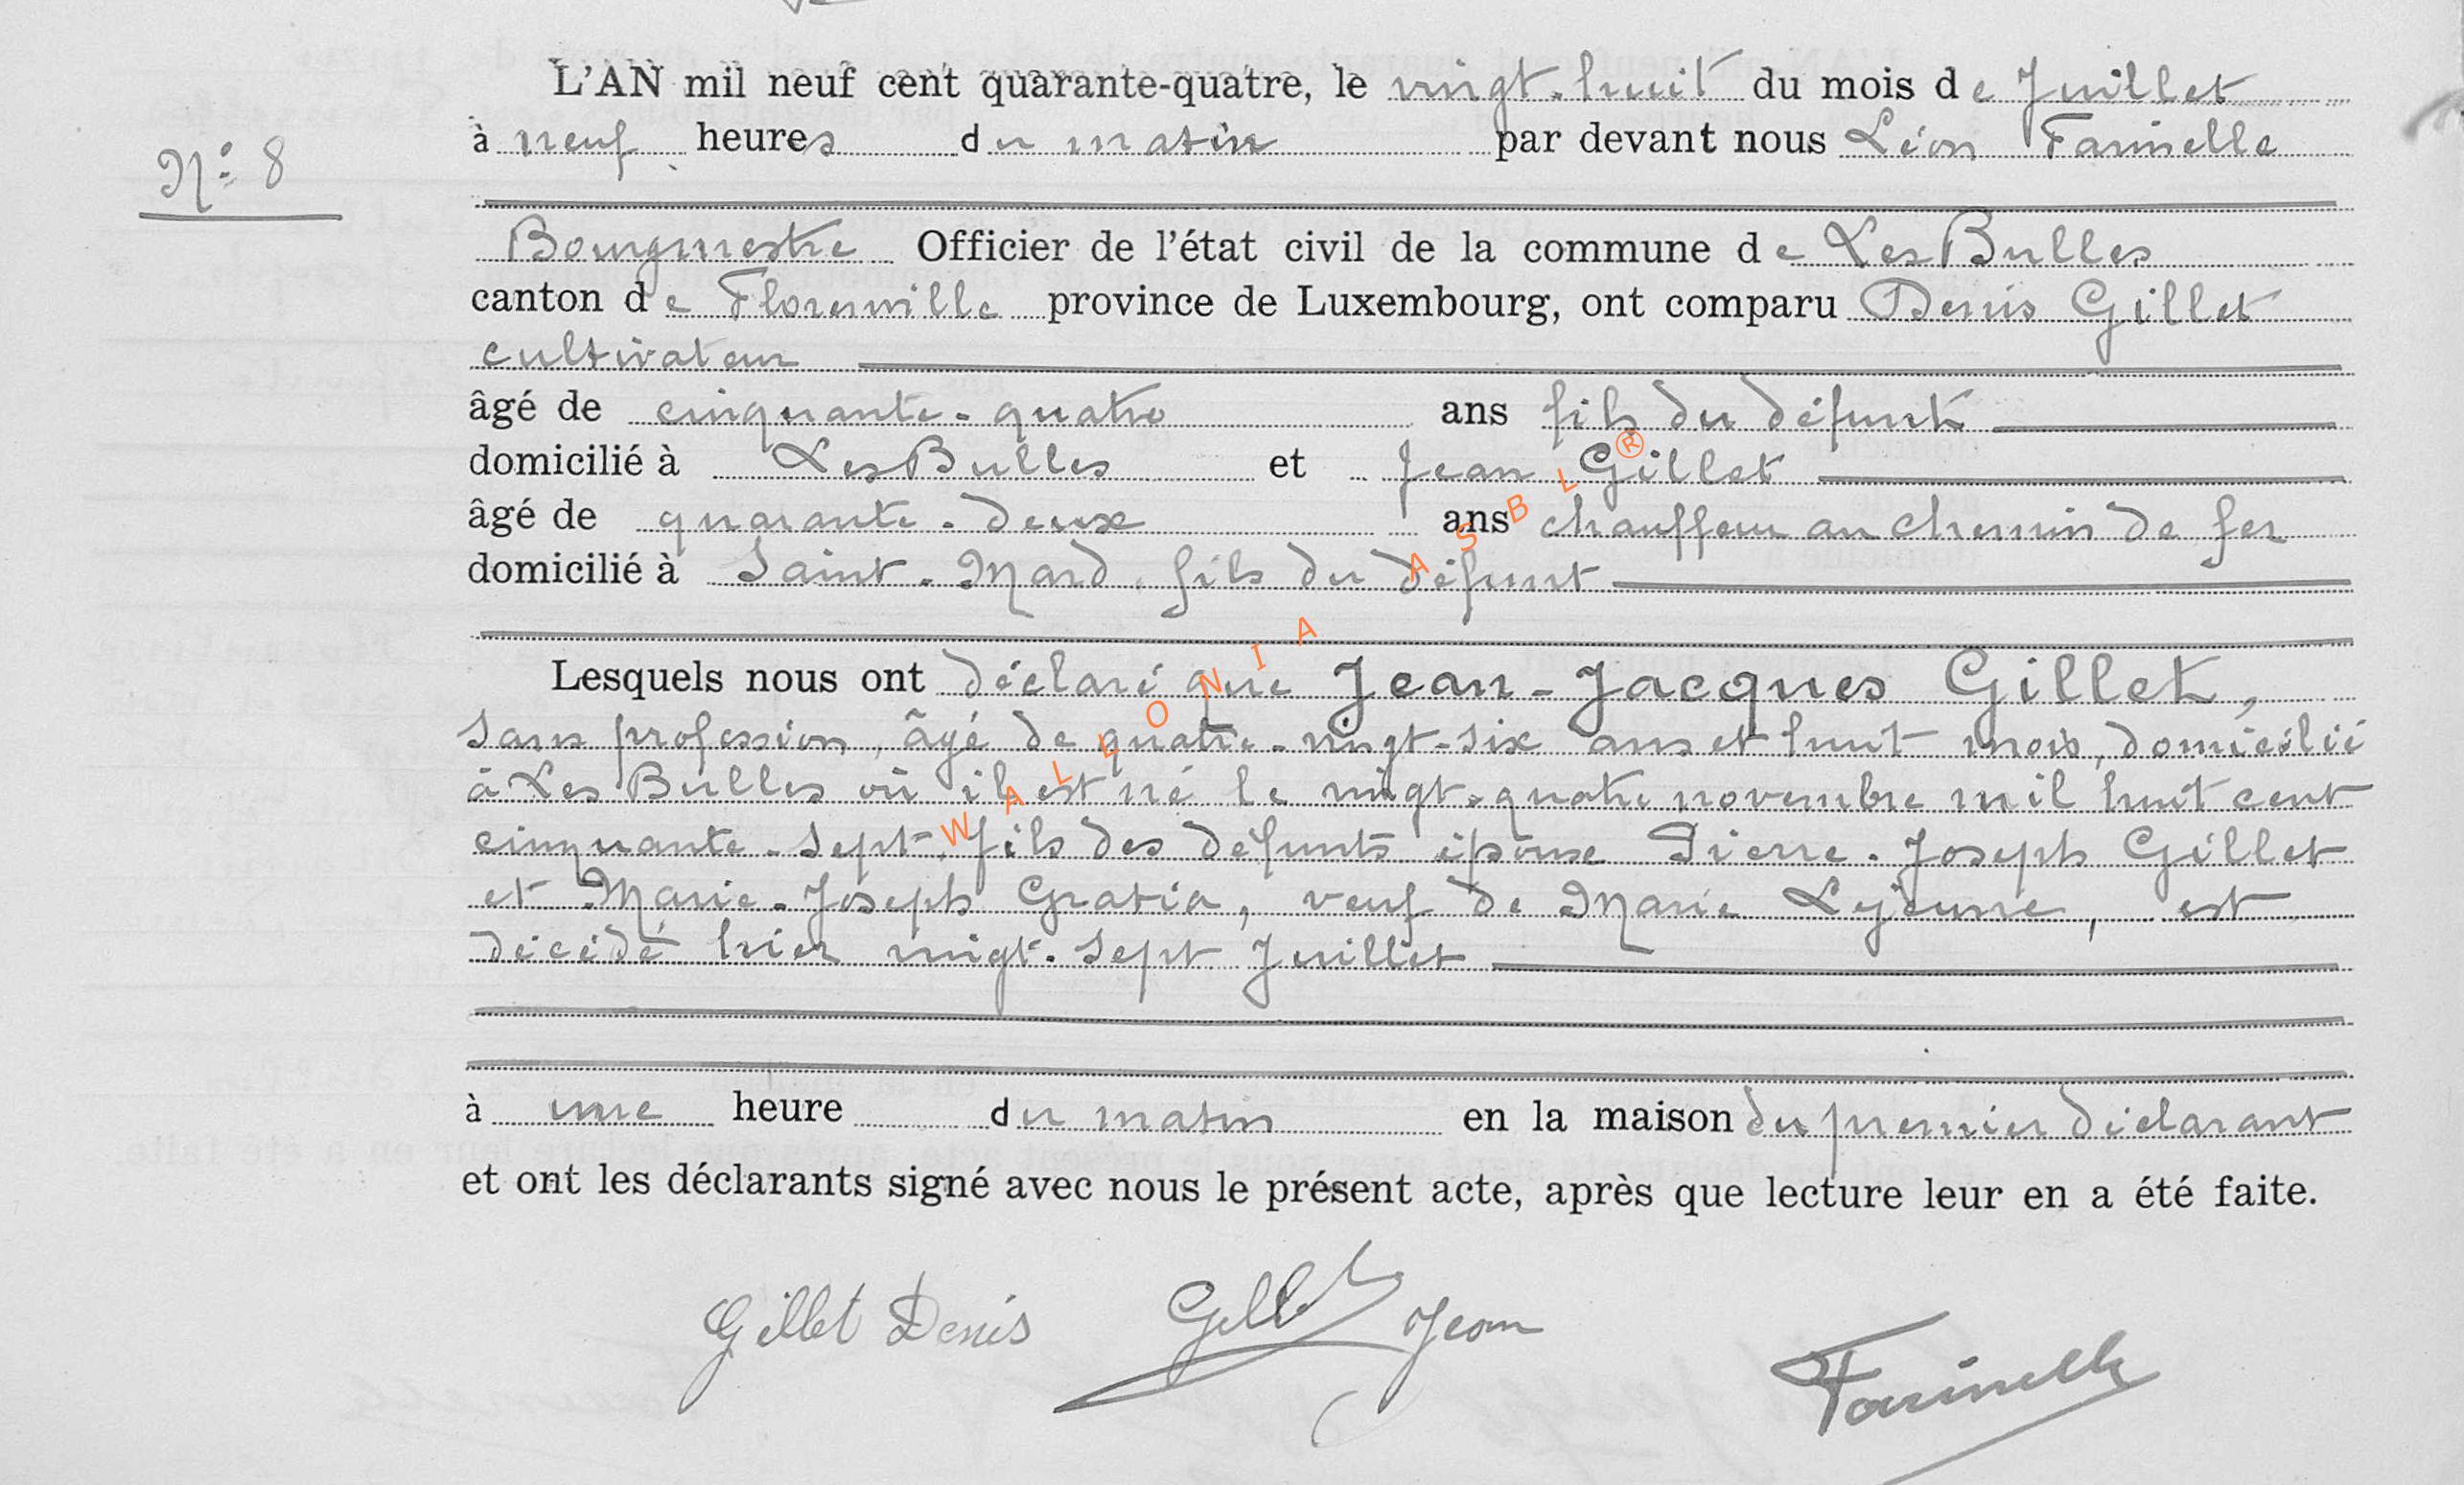 L'AN mil neuf cent quarante-quatre, le vingt-huit du mois de Juillet
à neuf heures du matin par devant nous Léon Farinelle
N° 8
Bourgmestre Officier de l'état civil de la commune de Les Bulles
canton de Florenville province de Luxembourg, ont comparu Denis Gillet
cultivateur
âgé de cinquante-quatre ans fils du défunt
domicilié à Les Bulles et Jean Gillet
âgé de quarante-deux ans chauffeur au chemin de fer
domicilié à Saint-Mard, fils du défunt
Lesquels nous ont déclaré que Jean-Jacques Gillet,
sans profession, âgé de quatre-vingt-six ans et huit mois, domicilié
à Les Bulles où il est né le vingt-quatre novembre mil huit cent
cinquante-sept, fils des défunts époux Pierre-Joseph Gillet
et Marie-Joseph Gratia, veuf de Marie Lejeune, est
décédé hier vingt-sept Juillet
à une heure du matin en la maison du premier déclarant
et ont les déclarants signé avec nous le présent acte, après que lecture leur en a été faite.
Gillet Denis Gillet Jean
Farinelle
WALLONIA ASBL®